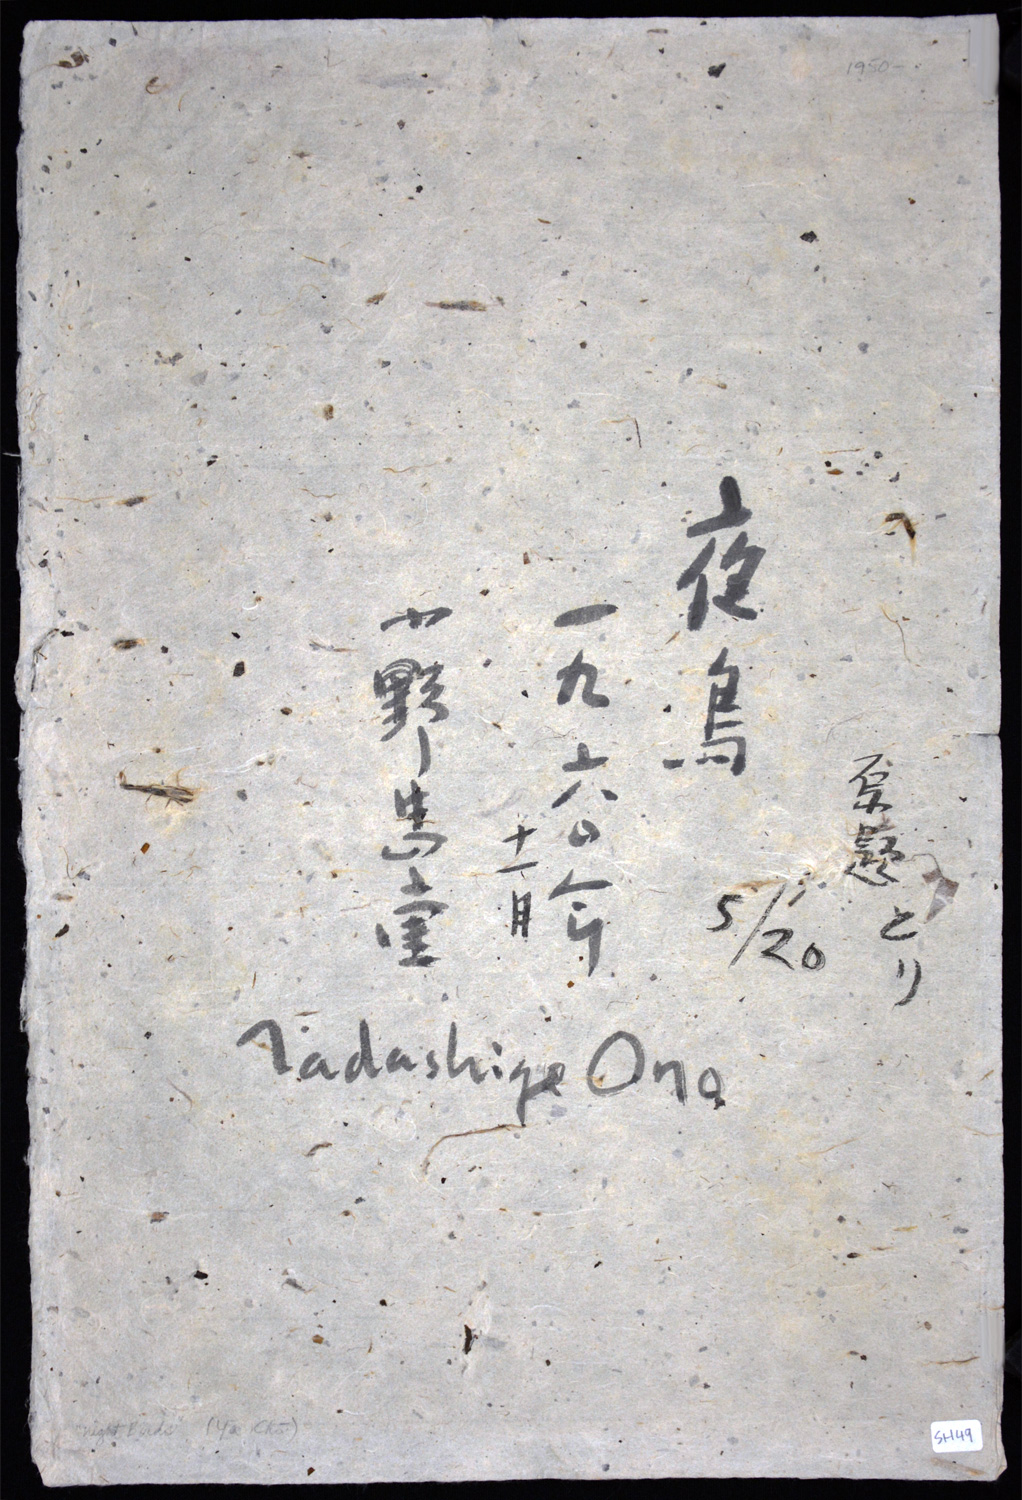 1950-
とり
夜鳥
5/20
一九六〇年
十一月
小野忠重
Tadashige Ono
"Night Birds" (Ya Chō)
SH49